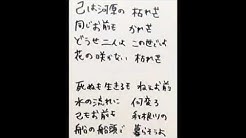 己は河原の 枯れすゝき
同じお前も かれすゝき
どうせ二人は この世では
花の咲かない 枯れすゝき
死ぬも生きるも ねえお前
水の流れに 何変ろ
己もお前も 利根川の
船の船頭で 暮らそうよ